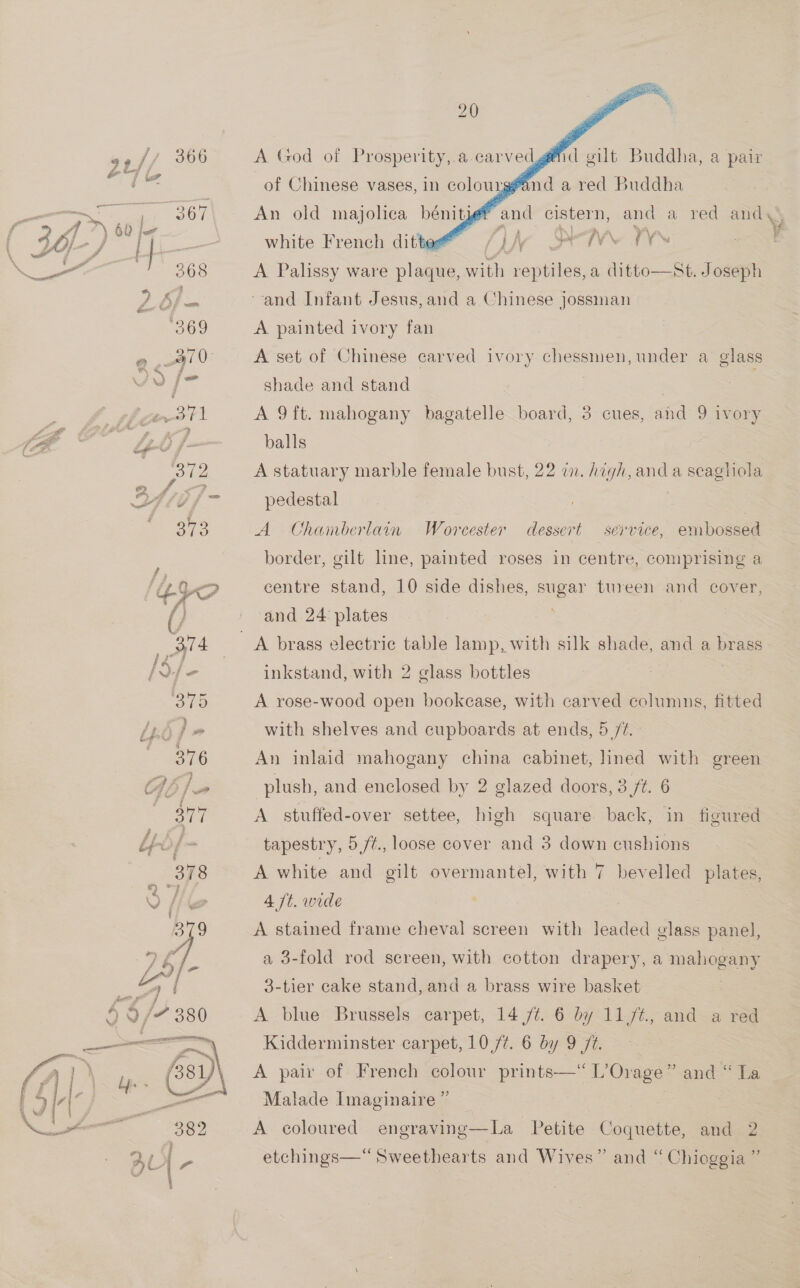 20
366 A God of Prosperity, a carved and gilt Buddha, a pair
of Chinese vases, in colours and a red Buddha
367 An old majolica bénitier and cistern, and a red and
white French ditto
368 A Palissy ware plaque, with reptiles, a ditto—St. Joseph
and Infant Jesus, and a Chinese jossman
369 A painted ivory fan
370 A set of Chinese carved ivory chessmen, under a glass
shade and stand
371 A 9ft. mahogany bagatelle board, 3 cues, and 9 ivory
balls
372 A statuary marble female bust, 22 in. high, and a scagliola
pedestal
373 A Chamberlain Worcester dessert service, embossed
border, gilt line, painted roses in centre, comprising a
centre stand, 10 side dishes, sugar tureen and cover,
and 24 plates
374 A brass electric table lamp, with silk shade, and a brass
inkstand, with 2 glass bottles
375 A rose-wood open bookcase, with carved columns, fitted
with shelves and cupboards at ends, 5 ft.
376 An inlaid mahogany china cabinet, lined with green
plush, and enclosed by 2 glazed doors, 3 ft. 6
377 A stuffed-over settee, high square back, in figured
tapestry, 5 ft., loose cover and 3 down cushions
378 A white and gilt overmantel, with 7 bevelled plates,
4 ft. wide
379 A stained frame cheval screen with leaded glass panel,
a 3-fold rod screen, with cotton drapery, a mahogany
3-tier cake stand, and a brass wire basket
380 A blue Brussels carpet, 14 ft. 6 by 11 ft., and a red
Kidderminster carpet, 10 ft. 6 by 9 ft.
381 A pair of French colour prints—“L’Orage” and “La
Malade Imaginaire”
382 A coloured engraving—La Petite Coquette, and 2
etchings—“Sweethearts and Wives” and “Chioggia”